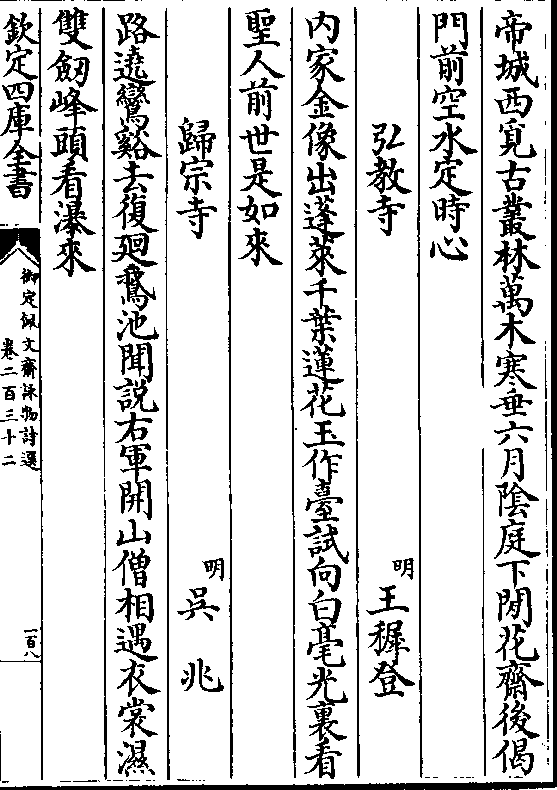 帝城西覓古叢林萬木寒垂六月陰庭下閒花齋後偈
門前空水定時心
弘教寺 明 王穉登
内家金像出蓬萊千葉蓮花玉作臺試向白毫光裏看
聖人前世是如來
歸宗寺 明 吳兆
路遶鸞谿去復廻鵞池聞説右軍開山僧相遇衣裳濕
雙劔峰頭看瀑來
欽定四庫全書
御定佩文齋詠物詩選
卷二百三十二
一百八